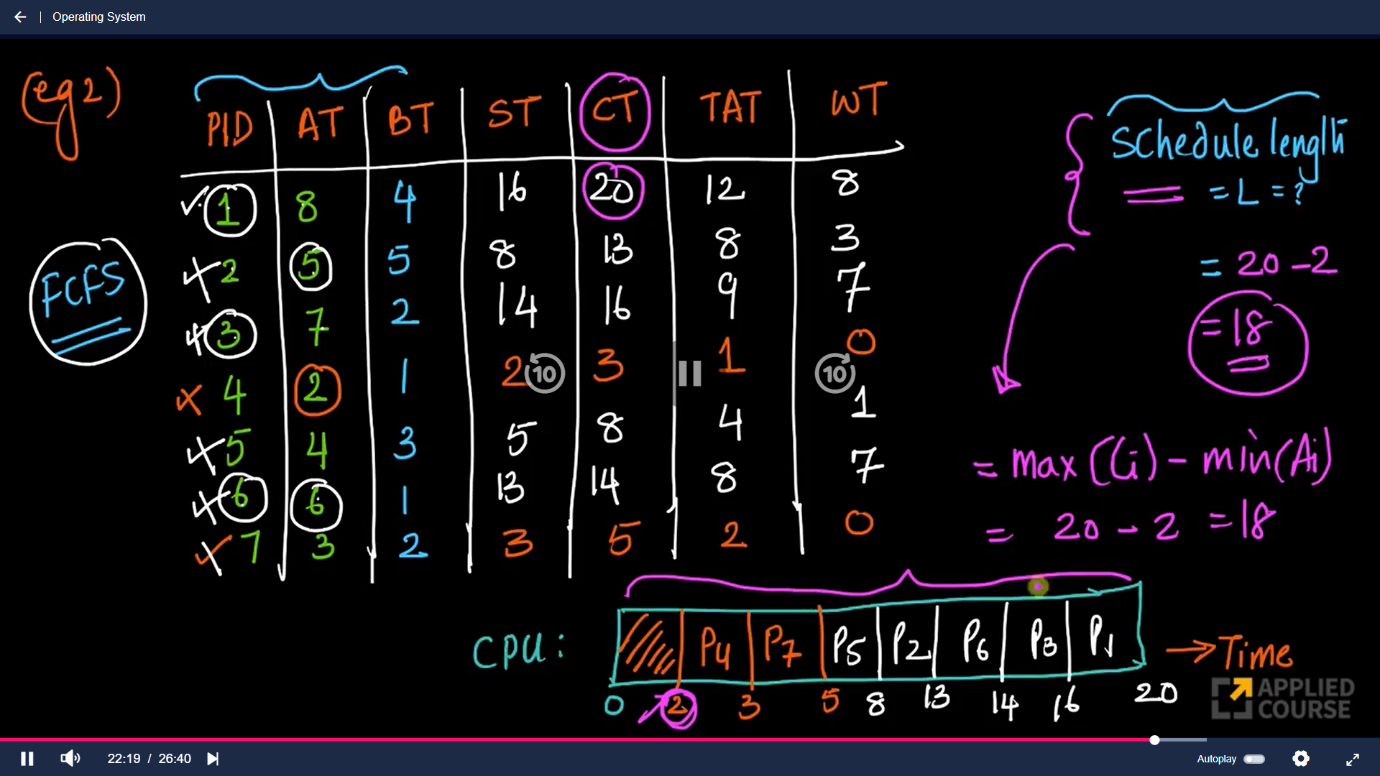 Operating System
(eg 2)
PID AT BT ST CT TAT WT
1 8 4 16 20 12 8
2 5 5 8 13 8 3
3 7 2 14 16 9 7
4 2 1 2 3 1 0
5 4 3 5 8 4 1
6 6 1 13 14 8 7
7 3 2 3 5 2 0
FCFS
10
10
Schedule length
= L = ?
= 20 - 2
= 18
= max (Ci) - min(Ai)
= 20 - 2 = 18
CPU: P4 P7 P5 P2 P6 P3 P1 → Time
0 2 3 5 8 13 14 16 20
APPLIED
COURSE
22:19 / 26:40
Autoplay